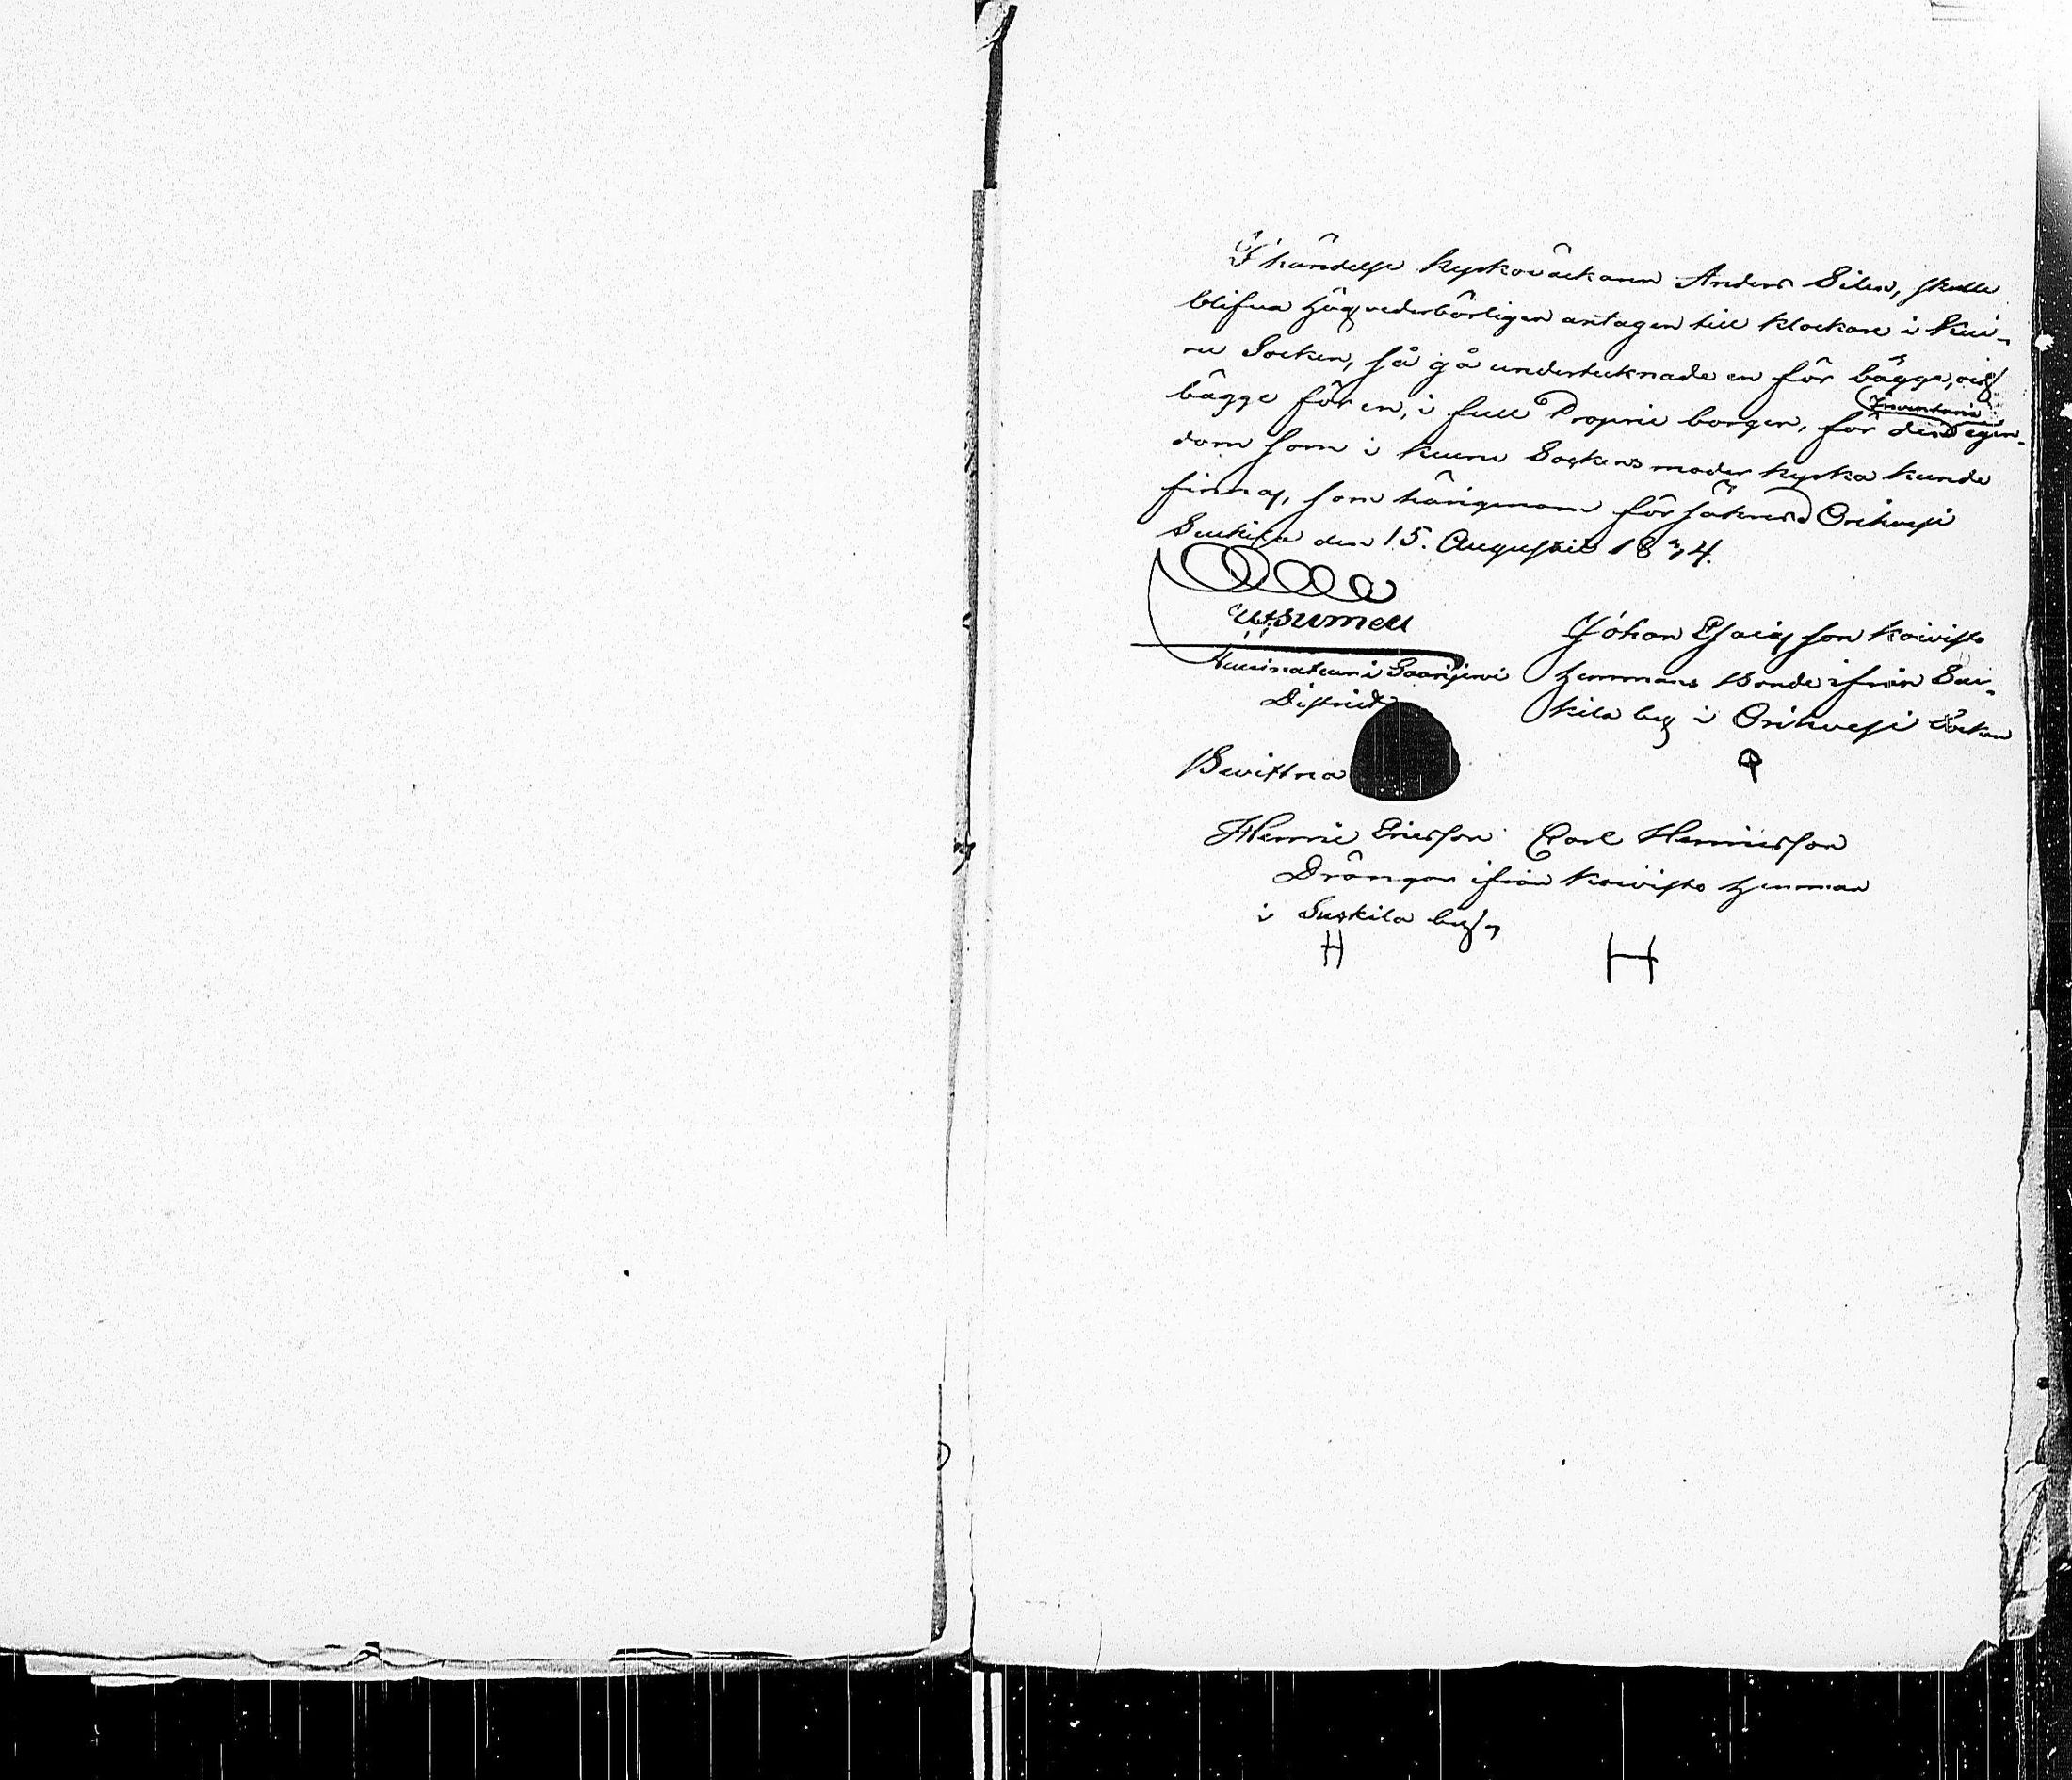 I händelse kyrkoväckaren Anders Silen, skulle
blifva högvederbörligen antagen till klockare i Kui-
ru Socken, så gå undertecknade en för bägge, och
bägge för en, i full Proprie borgen, för den Inventarie egen-
dom som i Kuuru Sockens moder kyrka kunde
finnas, som härigenom försäkras Orihvesi
den 15. Augusti 1834.
i Saarijervi
District
Johan Esaiasson Koivisto
hemmans Bonde ifrån Suk-
kila by i Orihvesi Socken
Bevittna
Henric Ericsson Carl Henricsson
Drängar ifrån Koivisto hemman
i Suskila by
H H